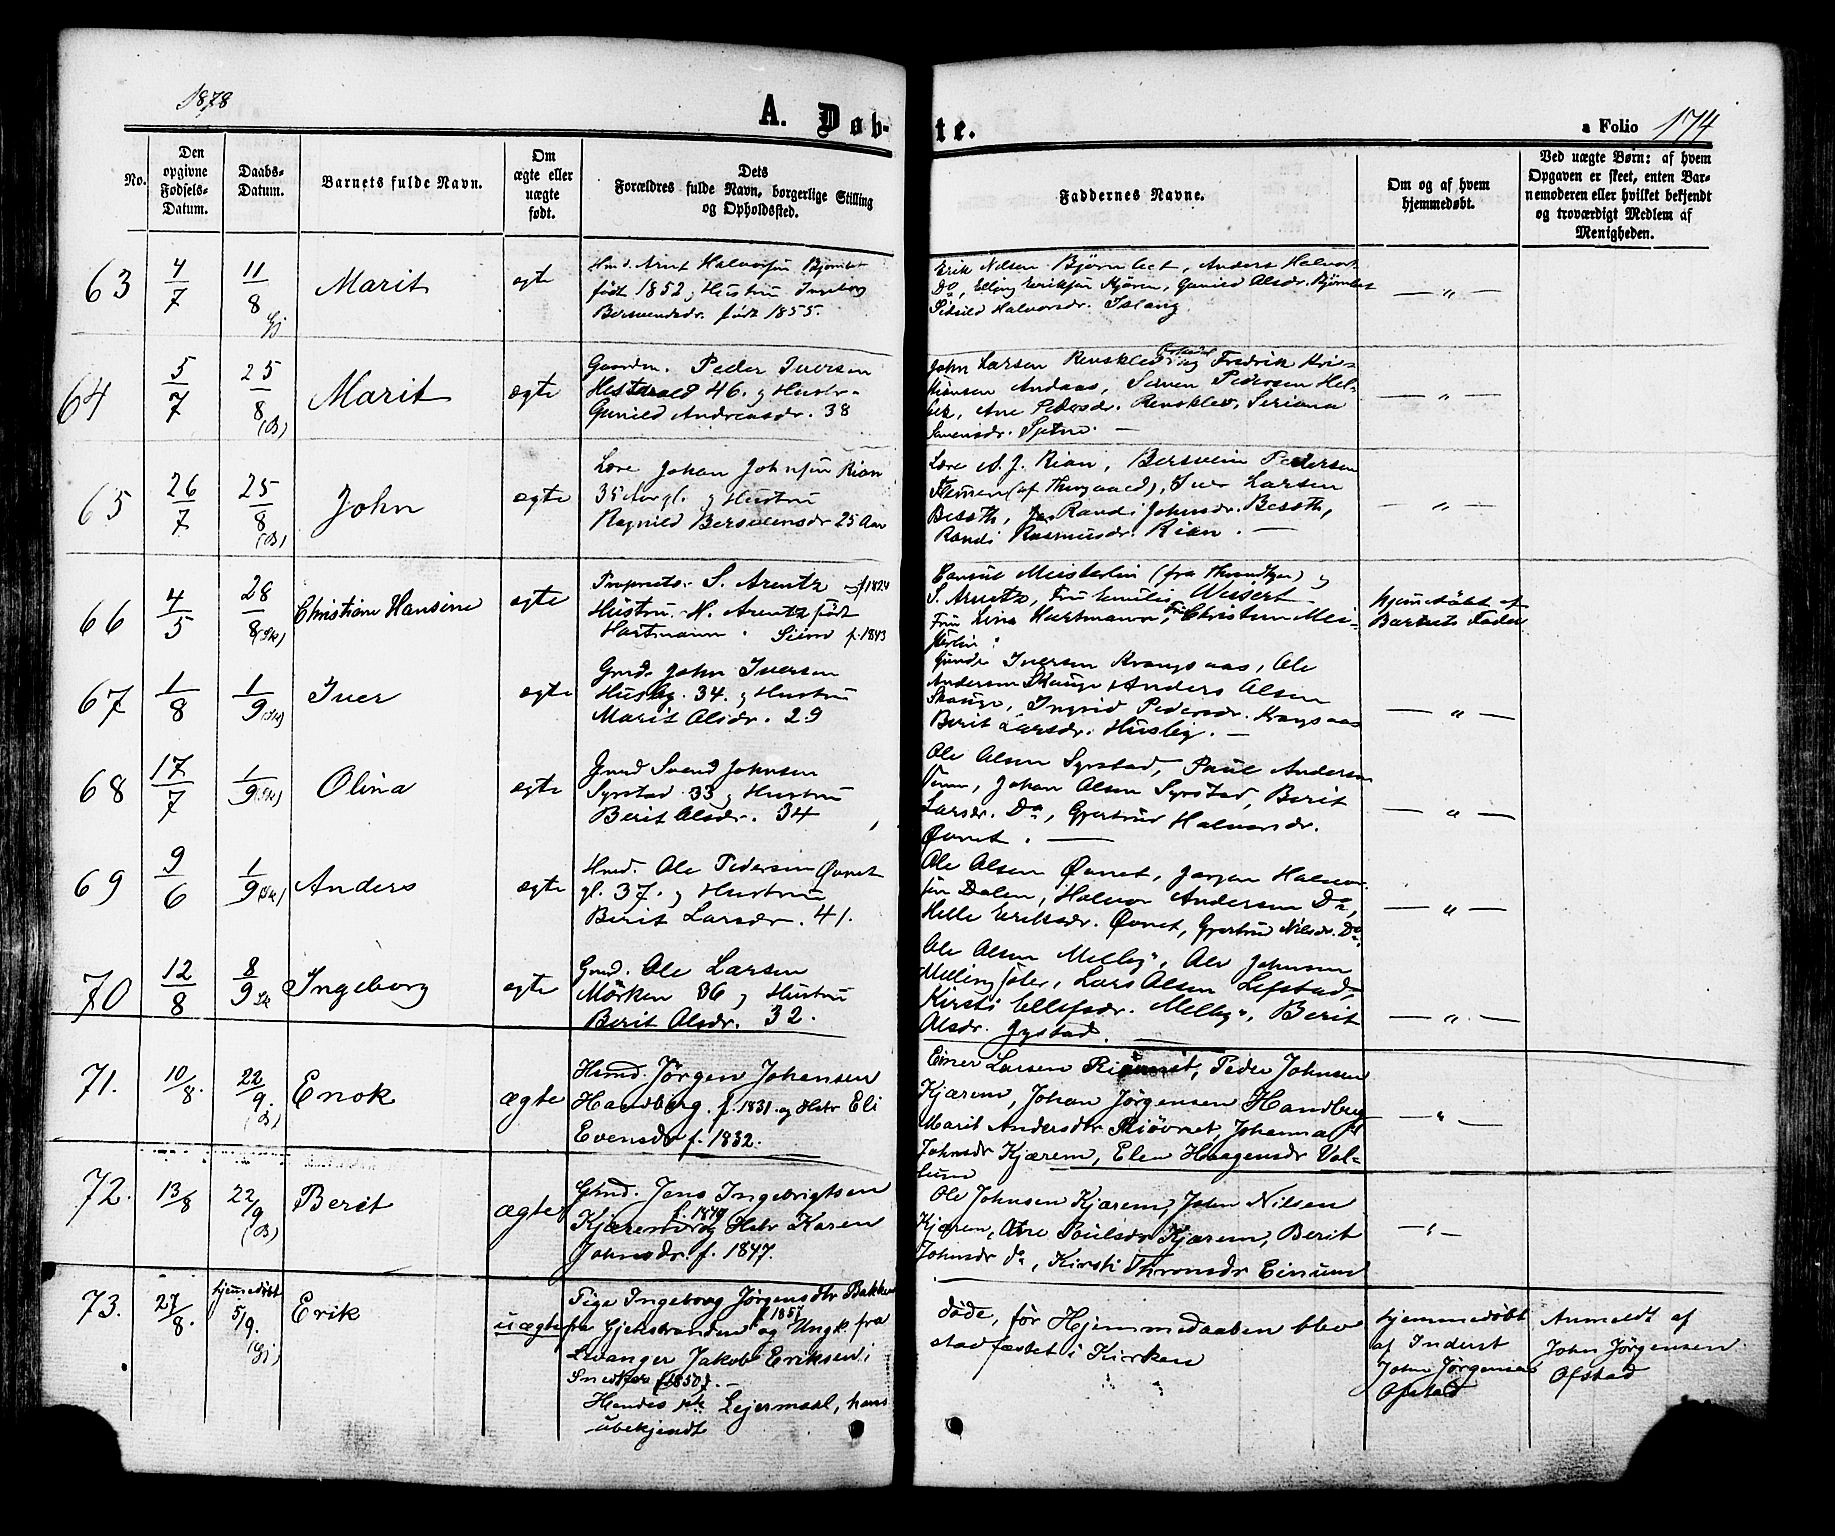 1878
A. Døb-
te.
a Folio 174
No.
Den
opgivne
Fødsels-
Datum.
Daabs-
Datum.
Barnets fulde Navn.
Om
ægte eller
uægte
født.
Dets
Forældres fulde Navn, borgerlige Stilling
og Opholdssted.
Faddernes Navne.
Om og af hvem
hjemmedøbt.
Ved uægte Børn: af hvem
Opgaven er skeet, enten Bar-
nemoderen eller hvilket bekjendt
og troværdigt Medlem af
Menigheden.
63 4/7 11/8 Gj Marit ægte
Hmd. Arnt Halvorsen Bjørnbet
født 1852 og Hustru Ingebor
Bersvendsdr. født 1855.
Erik Nilsen Bjørnbet, Anders Halvors.
Do, Elling Eriksen Kjøren, Gunild Olsdr. Bjørnbet
Sidsel Halvorsdr. Islang
— " —
64 5/7 25/8 (B) Marit ægte
Gaardm. Peder Iversen
46. og Hustr.
Gunild Andreasdr. 38
John Larsen Rensklev og Fredrik Kri-
stiansen Andaas, Søren Pedersen Hel-
bek, Ane Pedersdr. Rensklev, Seriana
Sørensdr. Sætne. —
— " —
65 26/7 25/8 (B) John ægte
Lære Johan Johnsen Rian
35 Aar gl. og Hustru
Ragnild Bersvensdr 25 Aar
Lære A. J. Rian, Bersvein Pedersen
Flemen (af Thingaard), Iver Larsen
Besøth, Randi Johnsdr. Besøth,
Randi Rasmusdr. Rian. —
— " —
66 4/5 28/8 (Sk) Christiane Hansine ægte
Propriets. S. Arentz f 1824
Hustru H. Arentz født
Hartmann. Seim f. 1843
Consul Meisterlin (fra Throndhjem) og
S. Arentz, Fru Emilie Weisert
Fru Lina Hartmann, Fr. Christine Mei-
sterlin.
hjemmedøbt af
Barnets Fader
67 1/8 1/9 (Sk) Iver ægte
Gmd. John Iversen
Husby. 34. og Hustru
Marit Olsdr. 29
Gunder Iversen Krangsaas, Ole
Andersen Skauge, Anders Olsen
Skauge, Ingrid Pedersdr. Krangsaas
Berit Larsdr. Husby. —
— " —
68 17/7 1/9 (Sk) Olina ægte
Gmd Svend Johnsen
Syrstad 33 og Hustru
Berit Olsdr. 34
Ole Olsen Syrstad, Paul Andersen
Johan Olsen Syrstad, Berit
Larsdr. Do, Gjertrud Halvorsdr.
Øvnet. —
— " —
69 9/6 1/9 (Sk) Anders ægte
Hmd. Ole Pedersen Øvnet
gl. 37. og Hustru
Berit Larsdr. 41.
Ole Olsen Øvnet, Jørgen Halvor-
sen Dalen, Halvor Andersen Do,
Helle Eriksdr. Øvnet, Gjertrud Nilsdr. Do
— " —
70 12/8 8/9 Sk Ingeborg ægte
Gmd. Ole Larsen
Mørken 36 og Hustru
Berit Olsdr. 32.
Ole Olsen Melby, Ole Johnsen
Lars Olsen Lefstad,
Kirsti Ellefsdr. Melby, Berit
Olsdr. Jystad.
— " —
71. 10/8. 22/9. (B) Enok ægte
Hmd. Jørgen Johansen
Handberg. f. 1831. og Hstr Eli
Evensdr f. 1832.
Einer Larsen Riøvnet, Peder Johnsen
Kjærem, Johan Jørgensen Handberg
Marit Andersdtr Riøvnet, Johanna
Johnsdr Kjærem, Elen Haagensdr Val-
lum
— " —
72. 13/8 22/9 (B) Berit ægte
Gmd. Jens Ingebrigtsen
Kjærem f. 1849 og Hstr Karen
Johnsdr. f. 1847.
Ole Johnsen Kjærem, John Nilsen
Kjærem, Ane Poulsdr Kjærem, Berit
Johnsdr do, Kirsti Thronsdr Einum
— " —
73. 27/8. hjemmedøbt 5/9. (Gj) Erik uægte
Pige Ingeborg Jørgensdtr Bakken
fra Gjelstranden f 1857 og Ungk. fra
Levanger Jakob Eriksen i
Snedker f 1850. —
Hendes Lejermaal, hans
ubekjendt
døde, før Hjemmedaaben blev
stadfæstet i Kirken
hjemmedøbt
af Inderst
John Jørgensen
Ofstad
Anmeldt af
John Jørgensen
Ofstad